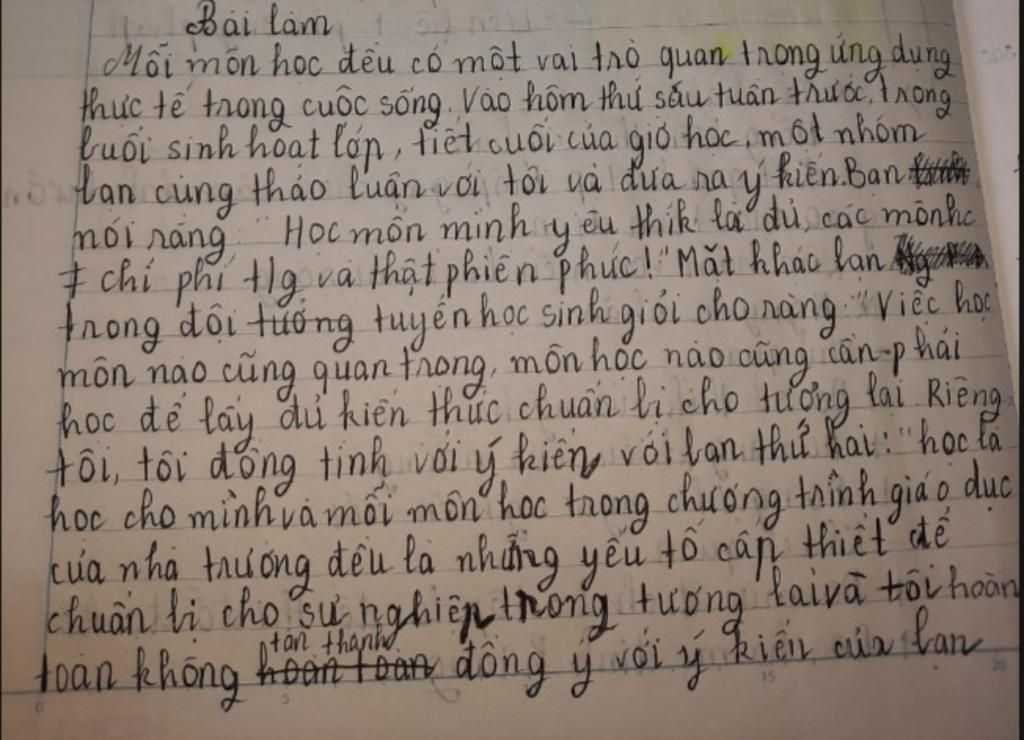 Bài làm
Mỗi môn học đều có một vai trò quan trọng ứng dụng
thực tế trong cuộc sống. Vào hôm thứ sáu tuần trước, trong
buổi sinh hoạt lớp, tiết cuối của giờ học, một nhóm
bạn cùng thảo luận với tôi và đưa ra ý kiến. Bạn
nói rằng "Học môn mình yêu thik là đủ, các môn hc
≠ chỉ phí t/g và thật phiền phức!" Mặt khác bạn
trong đội tướng tuyển học sinh giỏi cho rằng: "Việc học
môn nào cũng quan trọng, môn học nào cũng cần phải
học để lấy đủ kiến thức chuẩn bị cho tương lai. Riêng
tôi, tôi đồng tình với ý kiến với bạn thứ hai: "học là
học cho mình và mỗi môn học trong chương trình giáo dục
của nhà trường đều là những yếu tố cấp thiết để
chuẩn bị cho sự nghiệp trong tương lai và tôi hoàn
toàn không hoàn toàn tán thành đồng ý với ý kiến của bạn